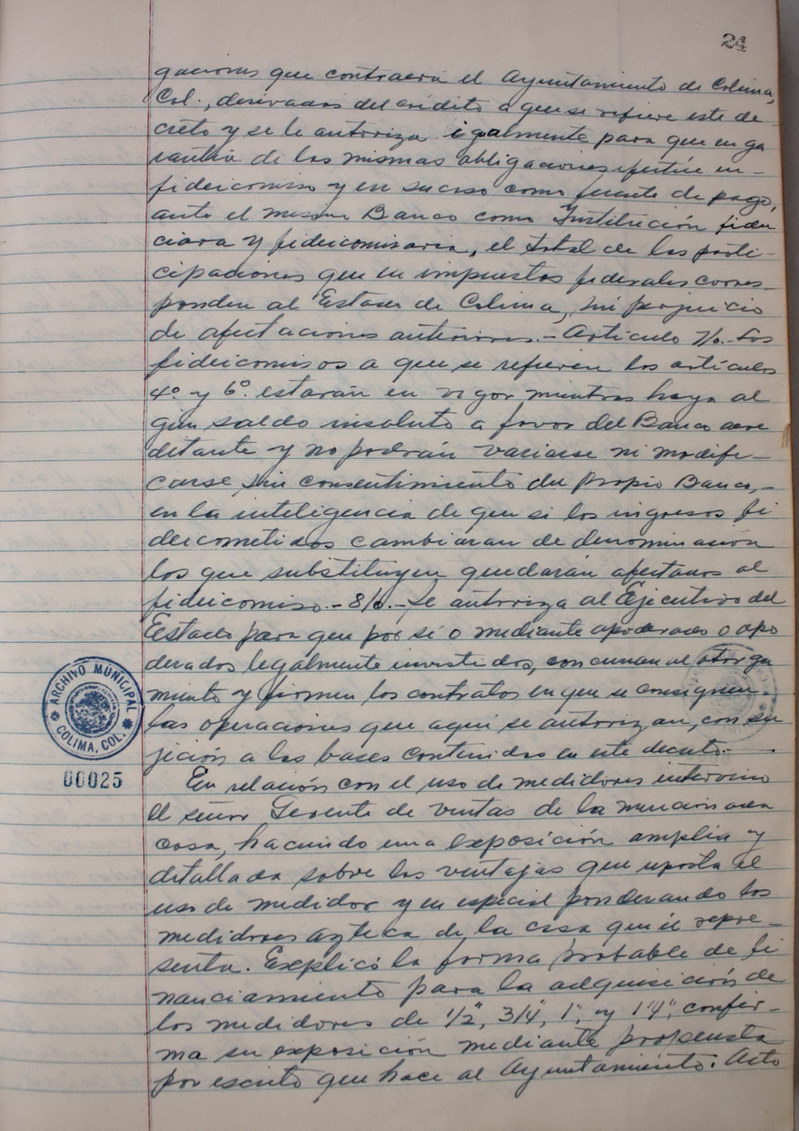 24
gaciones que contraerá el Ayuntamiento de Colima,
Col., derivadas del crédito a que se refiere este de
creto y se le autoriza igalmente para que en ga
rantía de las mismas obligaciones afecte en-
fideicomiso y en su caso como fuente de pago,
ante el mismo Banco como Institución fidu
ciaria y fideicomisaria, el total de las parti-
cipaciones que en impuestos federales corres-
ponden al Estado de Colima, sin perjuicio
de afectaciones anteriores.- Artículo 7/o.- Los
fideicomisos a que se refieren los artículos
4º y 6º. estarán en vigor mientras haya al
gún saldo insoluto a favor del Banco acre
ditante y no podrán variarse ni modifi-
carse sin consentimiento del propio Banco,-
en la inteligencia de que si los ingresos fi
deicometidos cambiaran de denominación
los que substituyen quedarán afectados al
fideicomiso.- 8/o.- Se autoriza al Ejecutivo del
Estado para que por sí o mediante apoderado o apo
derados legalmente investidos, concurran al otorga
miento y firmen los contratos en que se consignen
las operaciones que aquí se autorizan, con su
jeción a las bases contenidas en este decreto.-
En relación con el uso de medidores intervino
el señor Gerente de ventas de la mencionada
casa, haciendo una exposición amplia y
detallada sobre las ventajas que reporta el
uso de medidor y en especial ponderando los
medidores azteca de la casa que él repre-
senta. Explicó la forma probable de fi
nanciamiento para la adquisición de
los medidores de 1/2", 3/4", 1", y 1¼", confir-
ma su exposición mediante propuesta
por escrito que hace al Ayuntamiento. Acto
ARCHIVO MUNICIPAL
COLIMA, COL.
00025